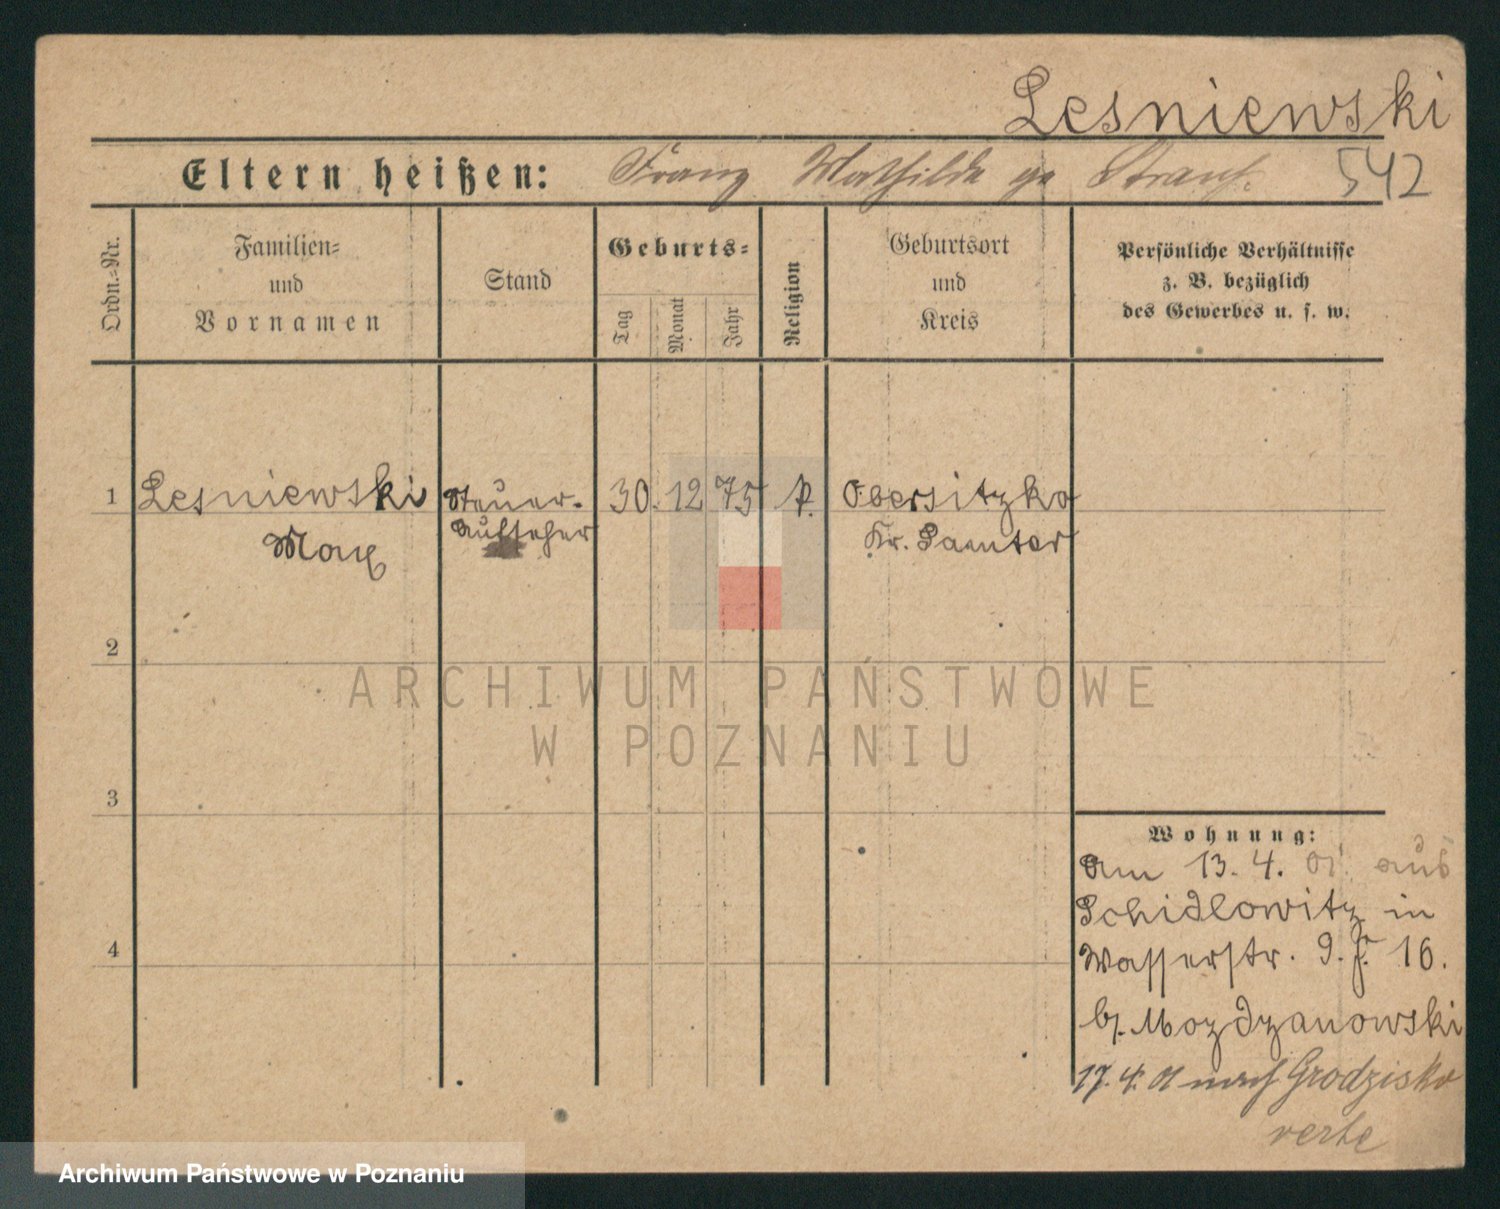 Lesniewski
Eltern heißen: Franz Mathilde ge Strauß.
542
Ordn.=Nr.
Familien=
und
Vornamen
Stand
Geburts=
Tag
Monat
Jahr
Religion
Geburtsort
und
Kreis
Persönliche Verhältnisse
z. B. bezüglich
des Gewerbes u. s. w.
1 Lesniewski Steuer- 30. 12 75 Obersitzko
Max Aufseher Kr. Samter
2
3
4
Wohnung:
am 13. 4. 01. aus
Schidlowitz in
Wasserstr. 16.
b. Mozdzanowski
17. 4. 01 nach Grodzisko
verte
ARCHIWUM PAŃSTWOWE
W POZNANIU
Archiwum Państwowe w Poznaniu